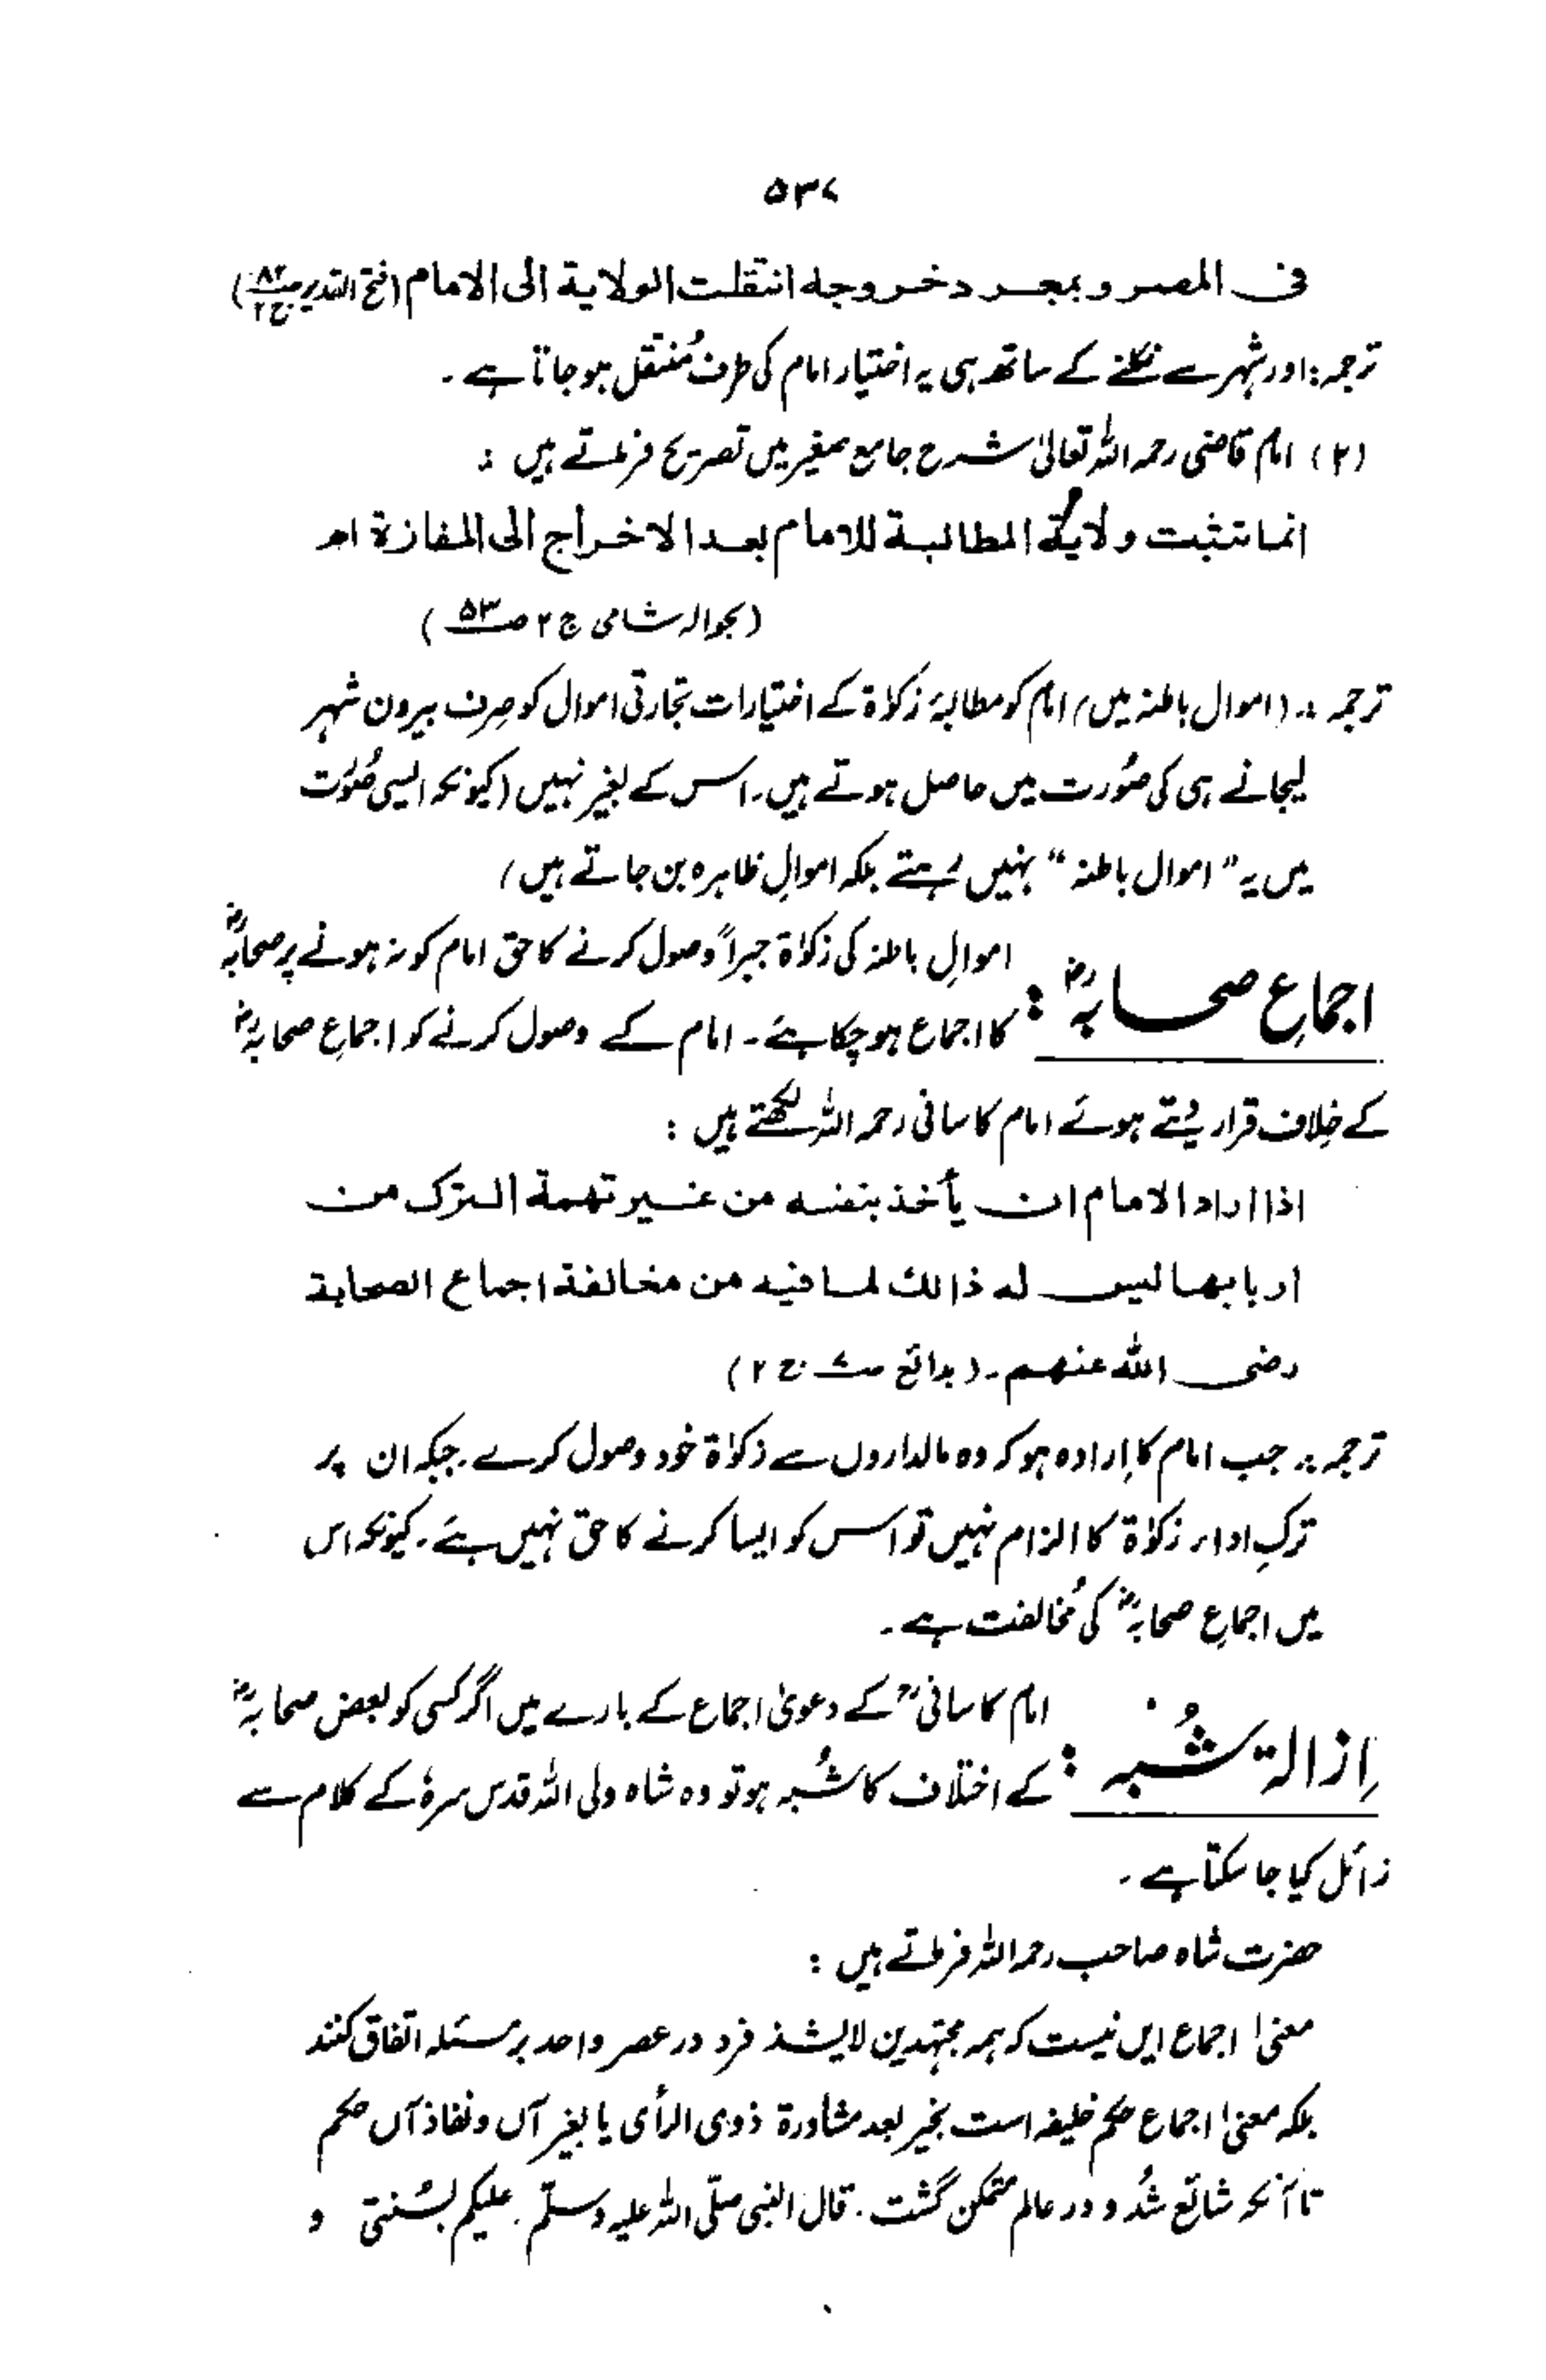 ۵۳۷
فی المصر و بمجرد خروجه انتقلت الولایة الی الامام (فتح القدیر ص۸۲ ج۲)
ترجمہ: اور شہر سے نکلنے کے ساتھ ہی یہ اختیار امام کی طرف مُنتقل ہو جاتا ہے۔
(۲) امام قاضی رحمہ اللہ تعالیٰ شرح جامع صغیر میں تصریح فرماتے ہیں :
انما تثبت ولایة المطالبة للامام بعد الاخراج الی المفازة اھ
(بحوالہ شامی ج ۲ ص۵۳)
ترجمہ :۔ (اموال باطنہ میں) امام کو مطالبۂ زکوٰۃ کے اختیارات تجارتی اموال کو صِرف بیرون شہر
لیجانے ہی کی صُورت میں حاصل ہوتے ہیں۔ اس کے بغیر نہیں (کیونکہ ایسی صُورت
میں یہ "اموال باطنہ" نہیں رہتے بلکہ اموالِ ظاہرہ بن جاتے ہیں)
اجماعِ صحابہؓ : اموالِ باطنہ کی زکوٰۃ جبراً وصول کرنے کا حق امام کو نہ ہونے پر صحابہؓ
کا اجماع ہو چکا ہے۔ امام کے وصول کرنے کو اجماعِ صحابہؓ
کے خِلاف قرار دیتے ہوئے امام کاسانی رحمہ اللہ لکھتے ہیں :
اذا اراد الامام ان یأخذ بنفسه من غیر تهمة الترک من
اربابها لیس له ذالك لما فیه من مخالفة اجماع الصحابة
رضی الله عنهم۔ (بدائع ص۷ ج ۲)
ترجمہ :۔ جب امام کا اِرادہ ہو کہ وہ مالداروں سے زکوٰۃ خود وصول کرے۔ جبکہ ان پر
ترکِ اداء زکوٰۃ کا الزام نہیں تو اس کو ایسا کرنے کا حق نہیں ہے۔ کیونکہ اس
میں اجماعِ صحابہؓ کی مُخالفت ہے۔
اِزالۃ شُبہ : امام کاسانیؒ کے دعویٰ اجماع کے بارے میں اگر کسی کو بعض صحابہؓ
کے اختلاف کا شُبہ ہو تو وہ شاہ ولی اللہ قدس سرہٗ کے کلام سے
زائل کیا جا سکتا ہے۔
حضرت شاہ صاحب رحمہ اللہ فرماتے ہیں :
معنیٰ اجماع ایں نیست کہ ہمہ مجتہدین لایشذ فرد در عصر واحد بر مسئلہ اتفاق کنند
بلکہ معنیٰ اجماع حکم خلیفہ است بخیر بعد مشاورۃ ذوی الرأی یا بغیر آں و نفاذ آں حکم
تا آنکہ شائع شُد و در عالم متمکن گشت۔ قال النبی صلّی اللہ علیہ وسلّم۔ علیکم بسُنتی و